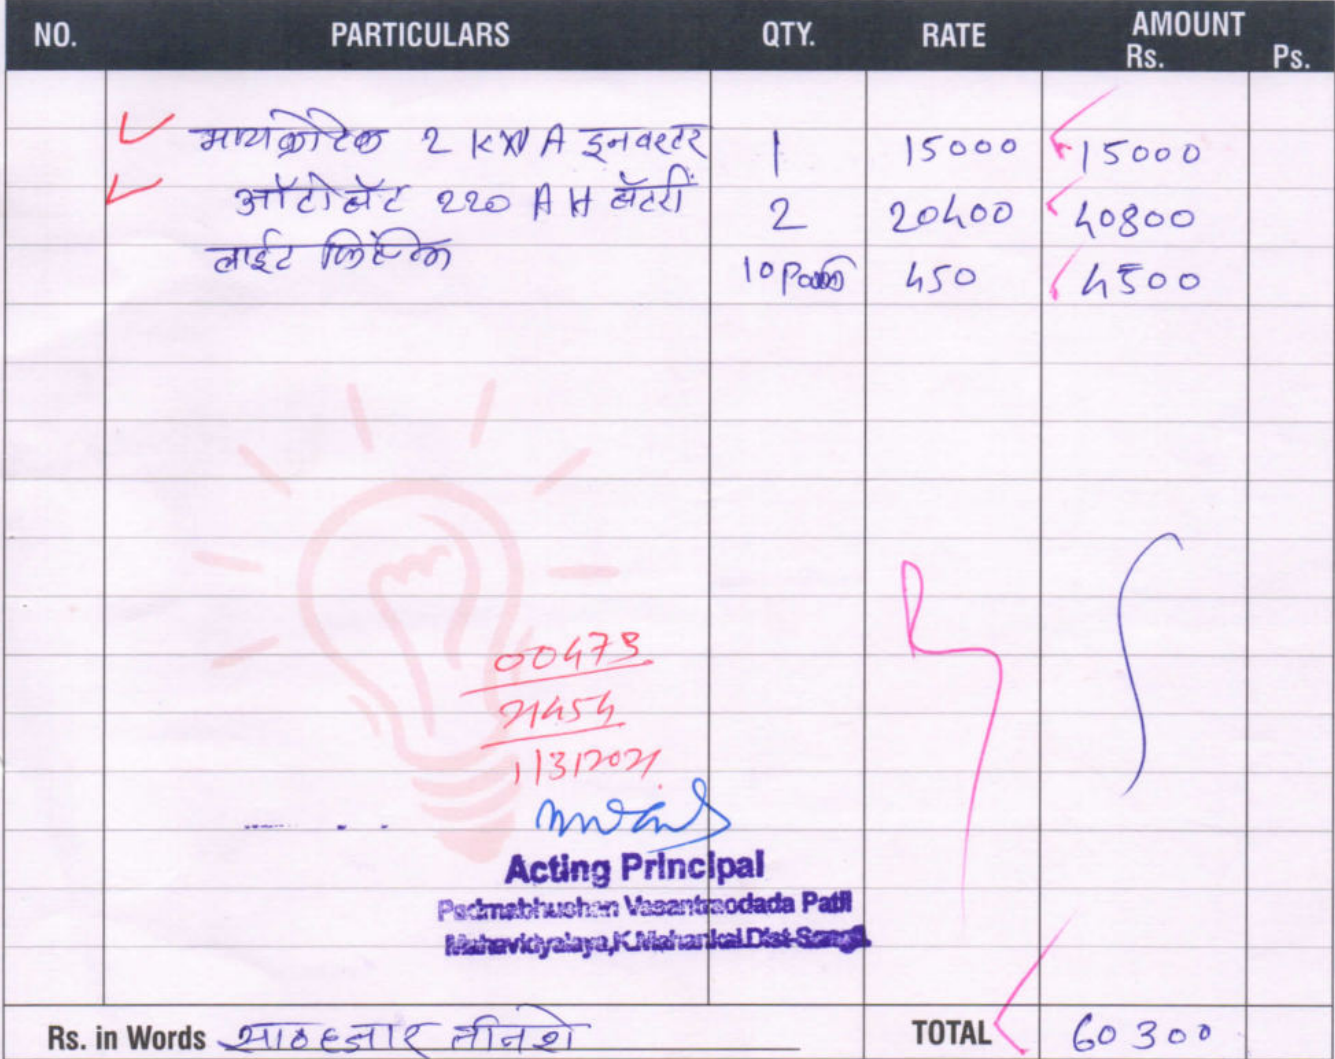 NO. PARTICULARS QTY. RATE AMOUNT
Rs. Ps.
मायक्रोटेक 2 KVA इनवरटर 1 15000 15000
ऑटोबॅट 220 AH बॅटरी 2 20400 40800
लाईट फिटिंग 10 450 4500
00473
21454
1/3/2021
Acting Principal
Padmabhushan Vasantraodada Patil
Mahavidyalaya, K.Mahankal.Dist-Sangli.
Rs. in Words साठहजार तीनशे TOTAL 60300